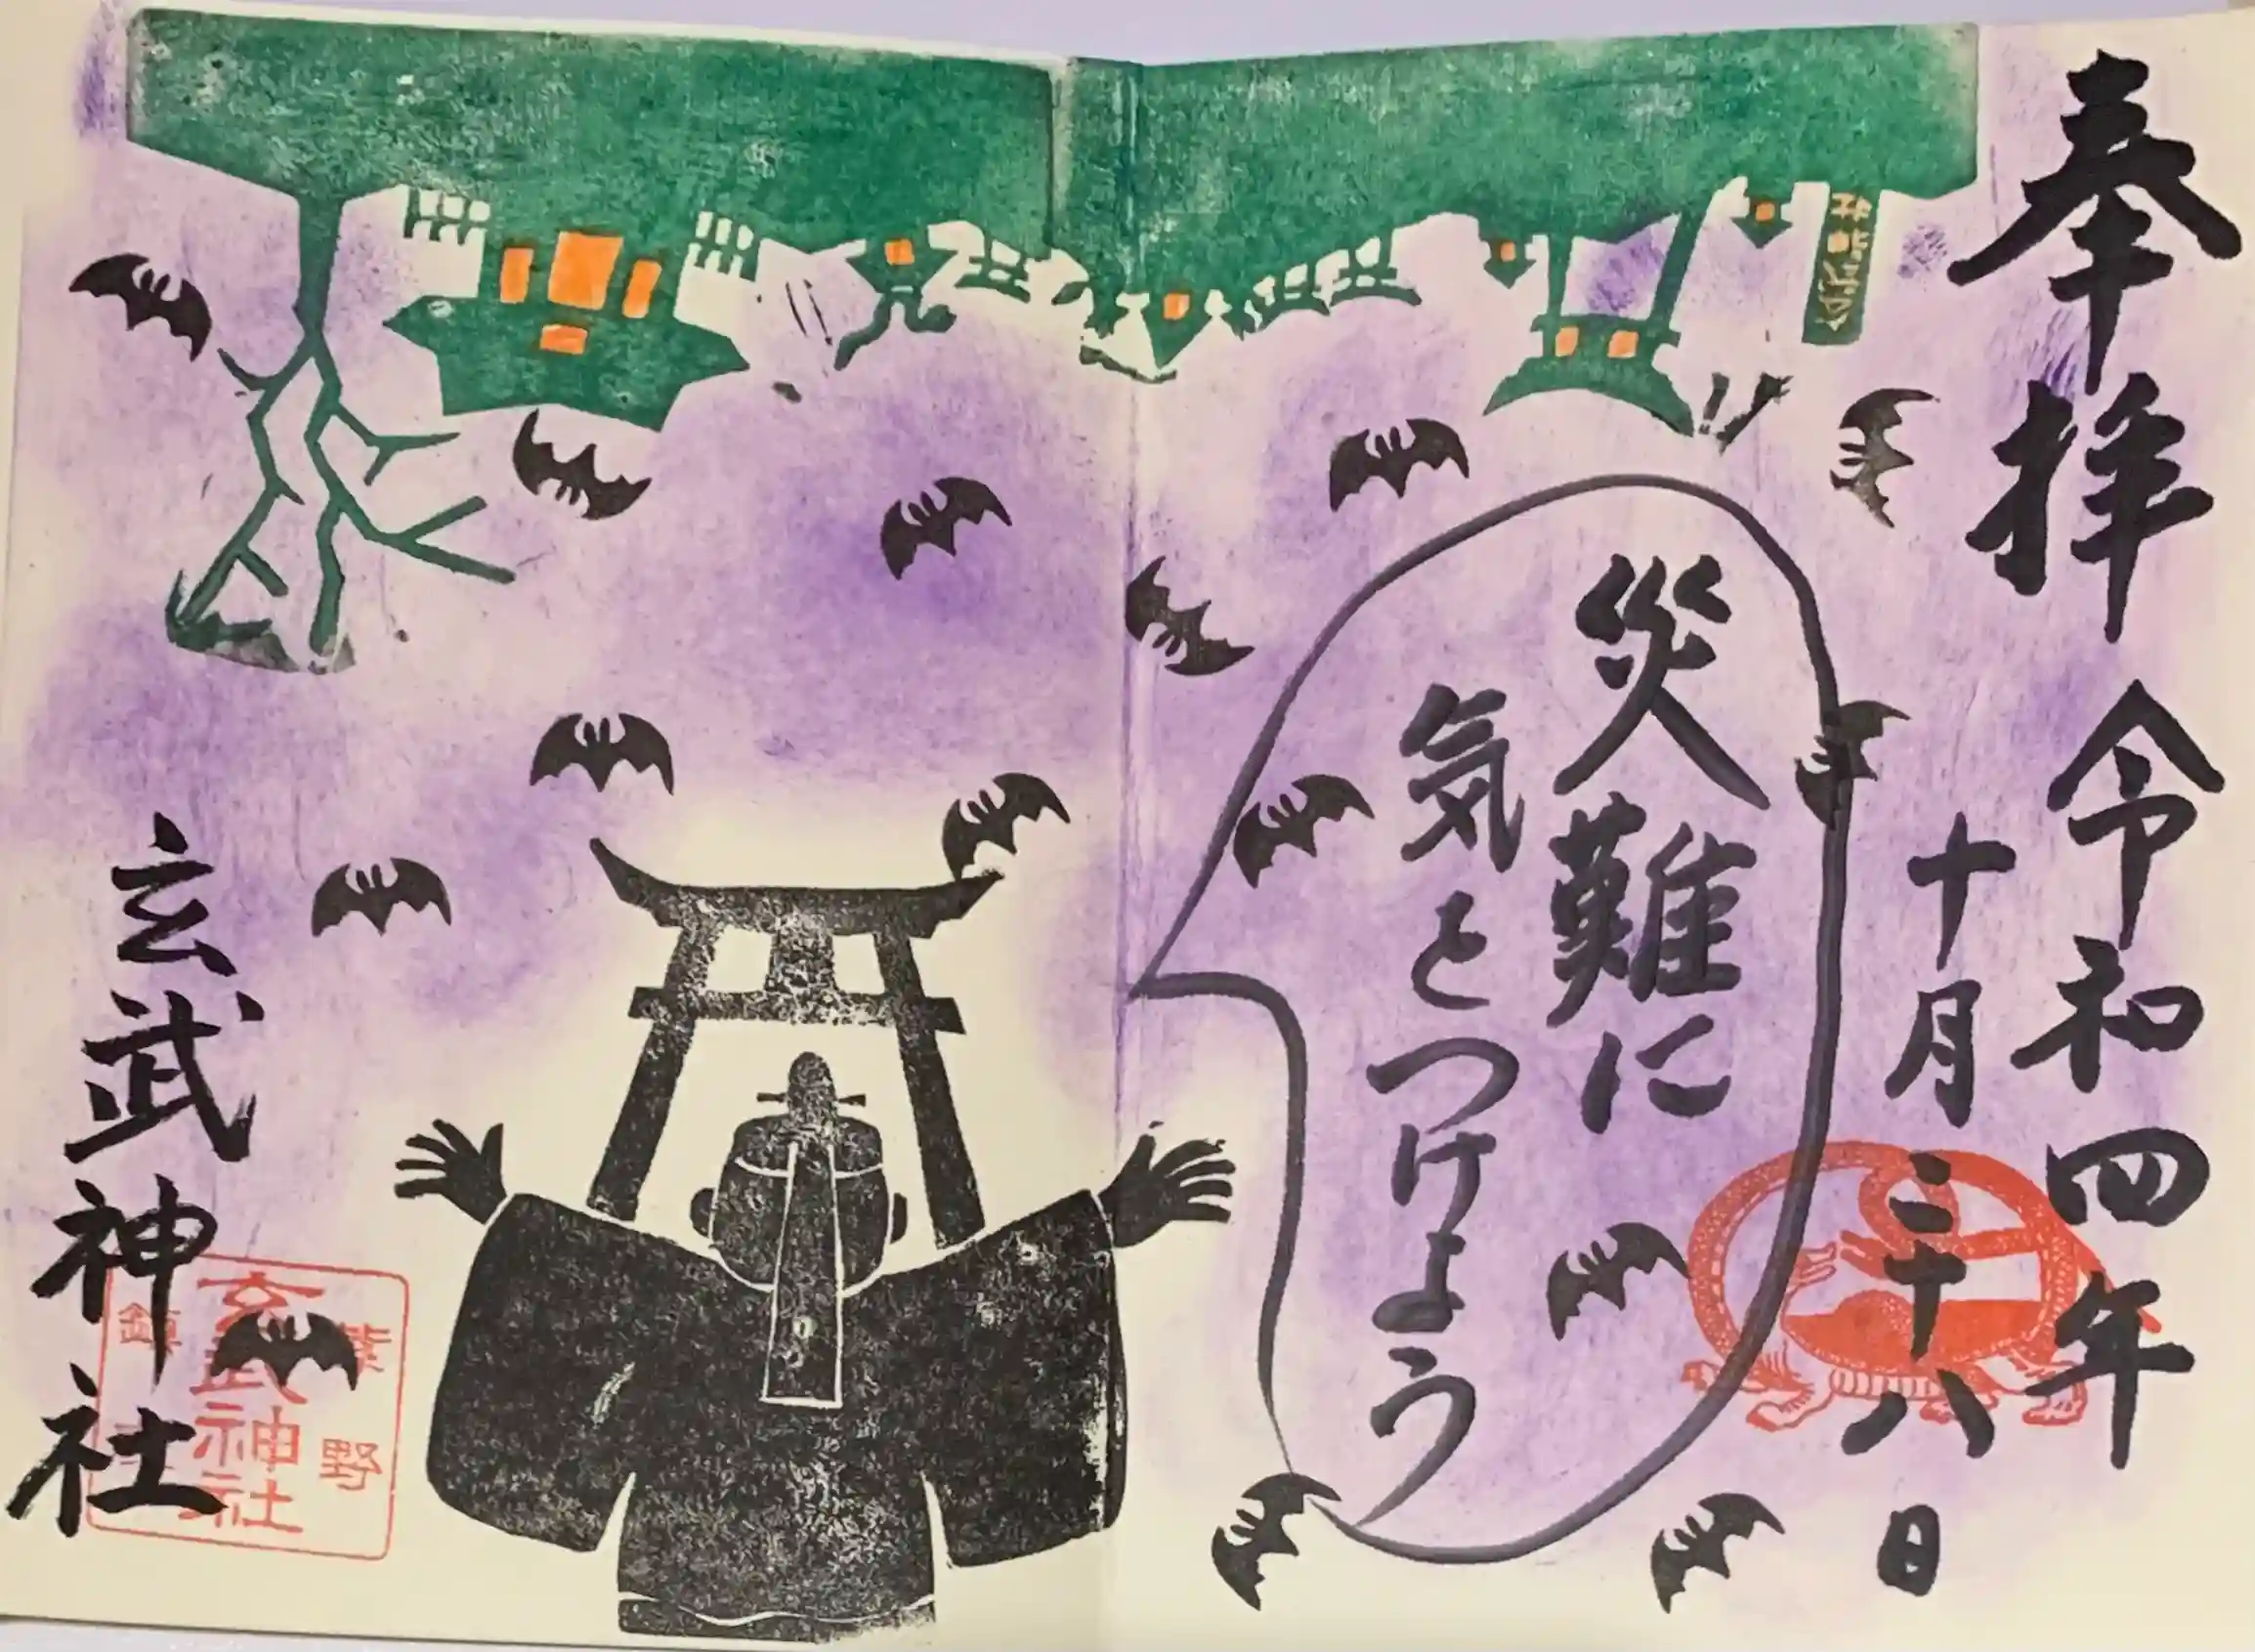 奉拝
令和四年
十月二十八日
災難に
気をつけよう
玄武神社
紫野
玄武神社
鎮
玄武神社